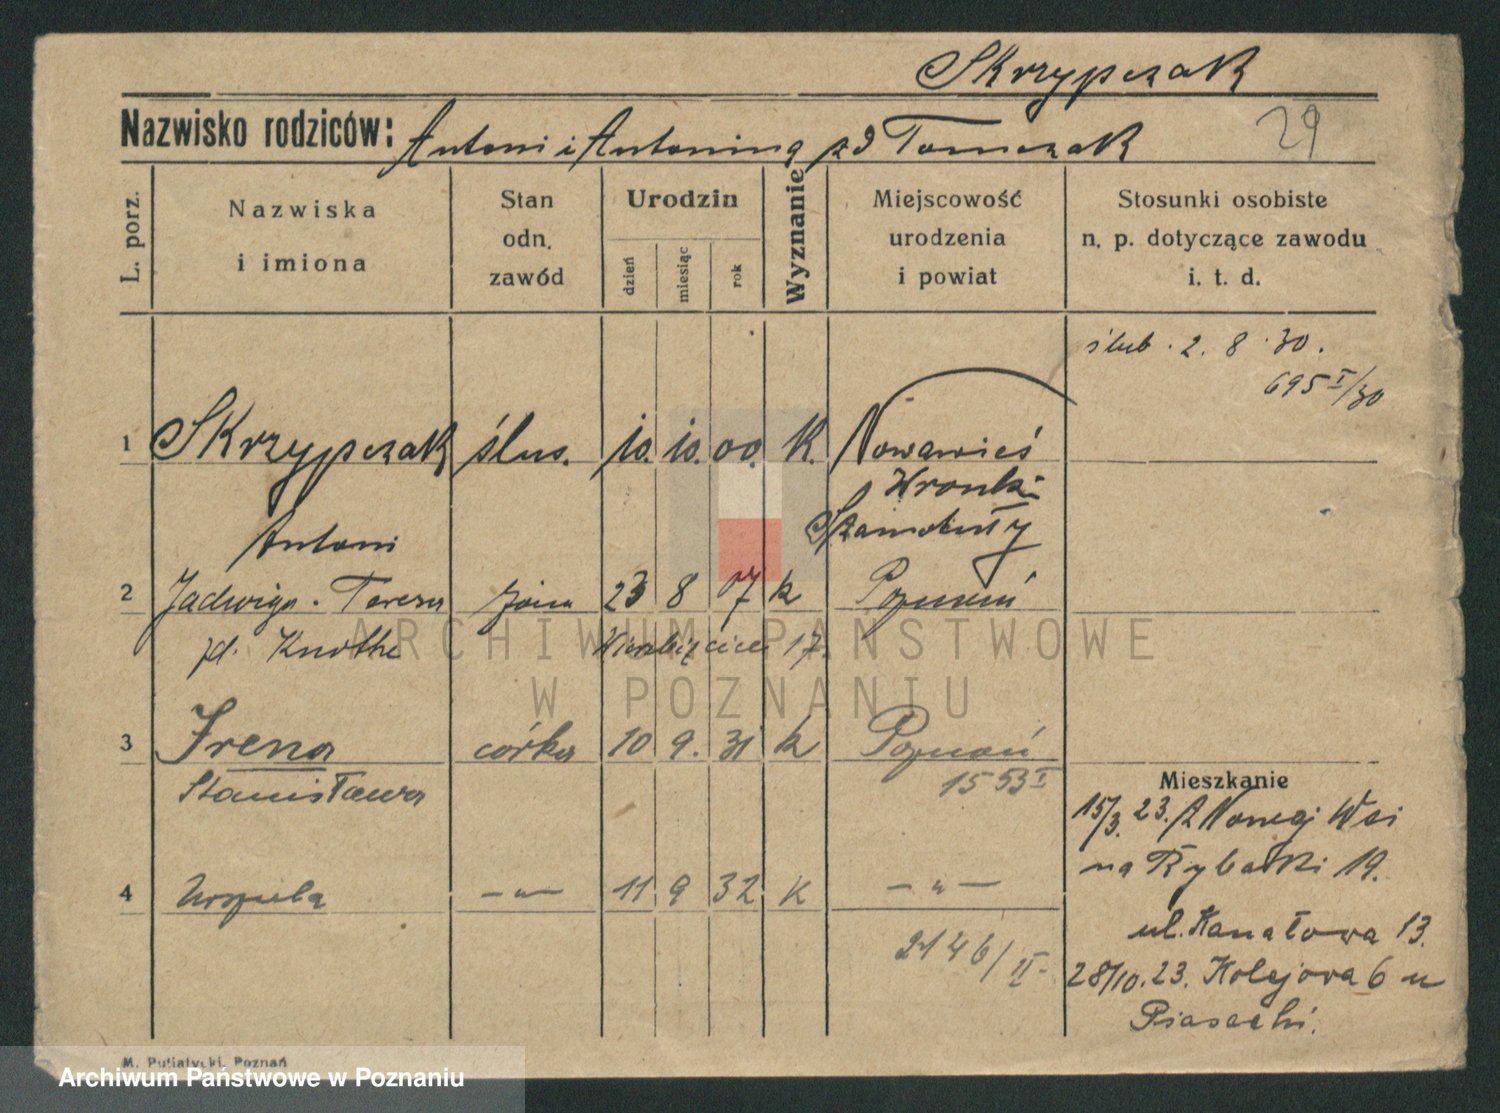 Skrzypczak
Nazwisko rodziców: Antoni i Antonina zd Tomczak
29
L. porz.
Nazwiska
i imiona
Stan
odn.
zawód
Urodzin
dzień
miesiąc
rok
Wyznanie
Miejscowość
urodzenia
i powiat
Stosunki osobiste
n. p. dotyczące zawodu
i. t. d.
ślub . 2. 8 . 30.
695 I/30
1 Skrzypczak ślus. 10. 10. 00. K. Nowawieś
Wronki
Antoni Szamotuły
2 Jadwiga - Teresa żona 23 8 07 k Poznań
zd. Knothe Wierzbięcice 17.
3 Irena córka 10 9. 31 k Poznań
Stanisława 1553 I
Mieszkanie
15/3. 23. z Nowej Wsi
na Rybaki 19.
4 Urszula —„— 11 9 32 K —„—
2146/II-
ul. Kanałowa 13.
28/10.23. Kolejowa 6 u
Piaseckí.
M. Putiatycki, Poznań
ARCHIWUM PAŃSTWOWE
W POZNANIU
Archiwum Państwowe w Poznaniu